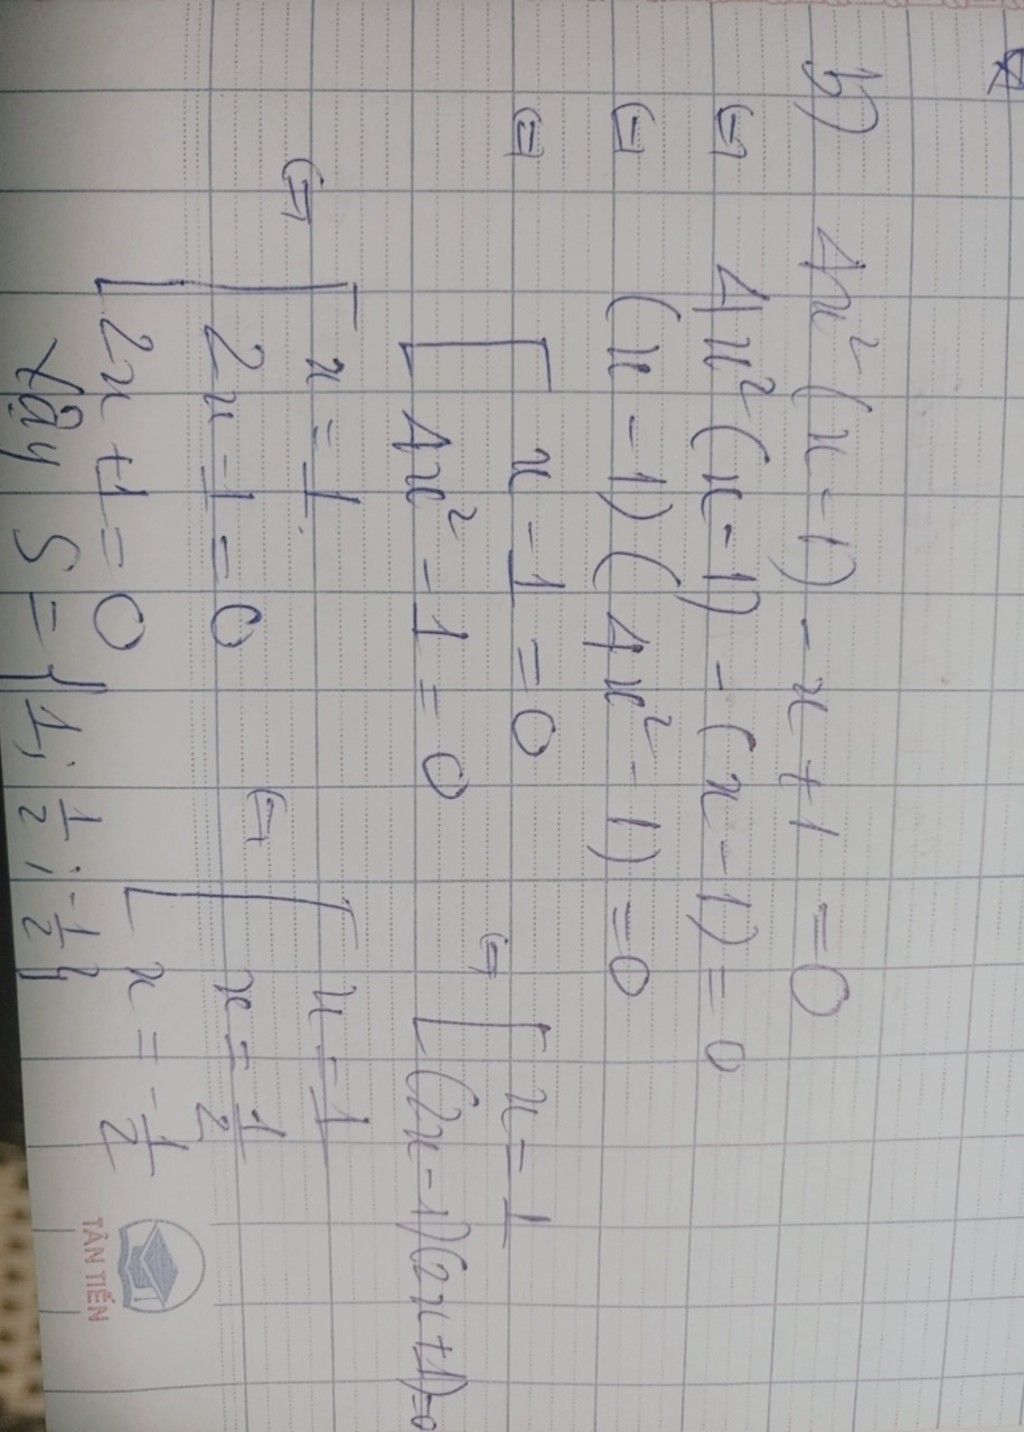 b) 4x²(x-1) - x+1 = 0
⇔ 4x²(x-1) - (x-1) = 0
⇔ (x-1)(4x²-1) = 0
⇔ [ x-1 = 0 ⇔ [ x = 1
4x²-1 = 0 (2x-1)(2x+1)=0
⇔ [ x = 1. ⇔ [ x = 1
2x-1 = 0 x = 1/2
2x+1 = 0 x = -1/2
Vậy S = {1; 1/2; -1/2}
TÂN TIẾN